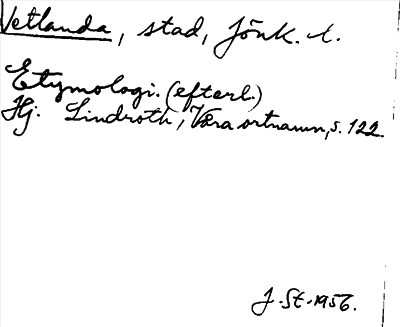 Vetlanda, stad, Jönk. l.
Etymologi. (efterl.)
Hj. Lindroth, Våra ortnamn, s. 122.
J. St. 1956.